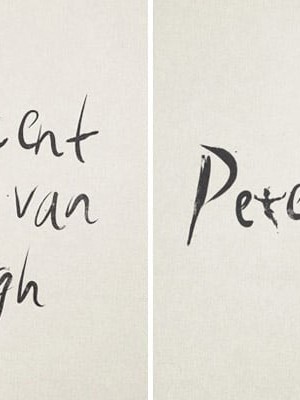 ent
van
gh
Pete